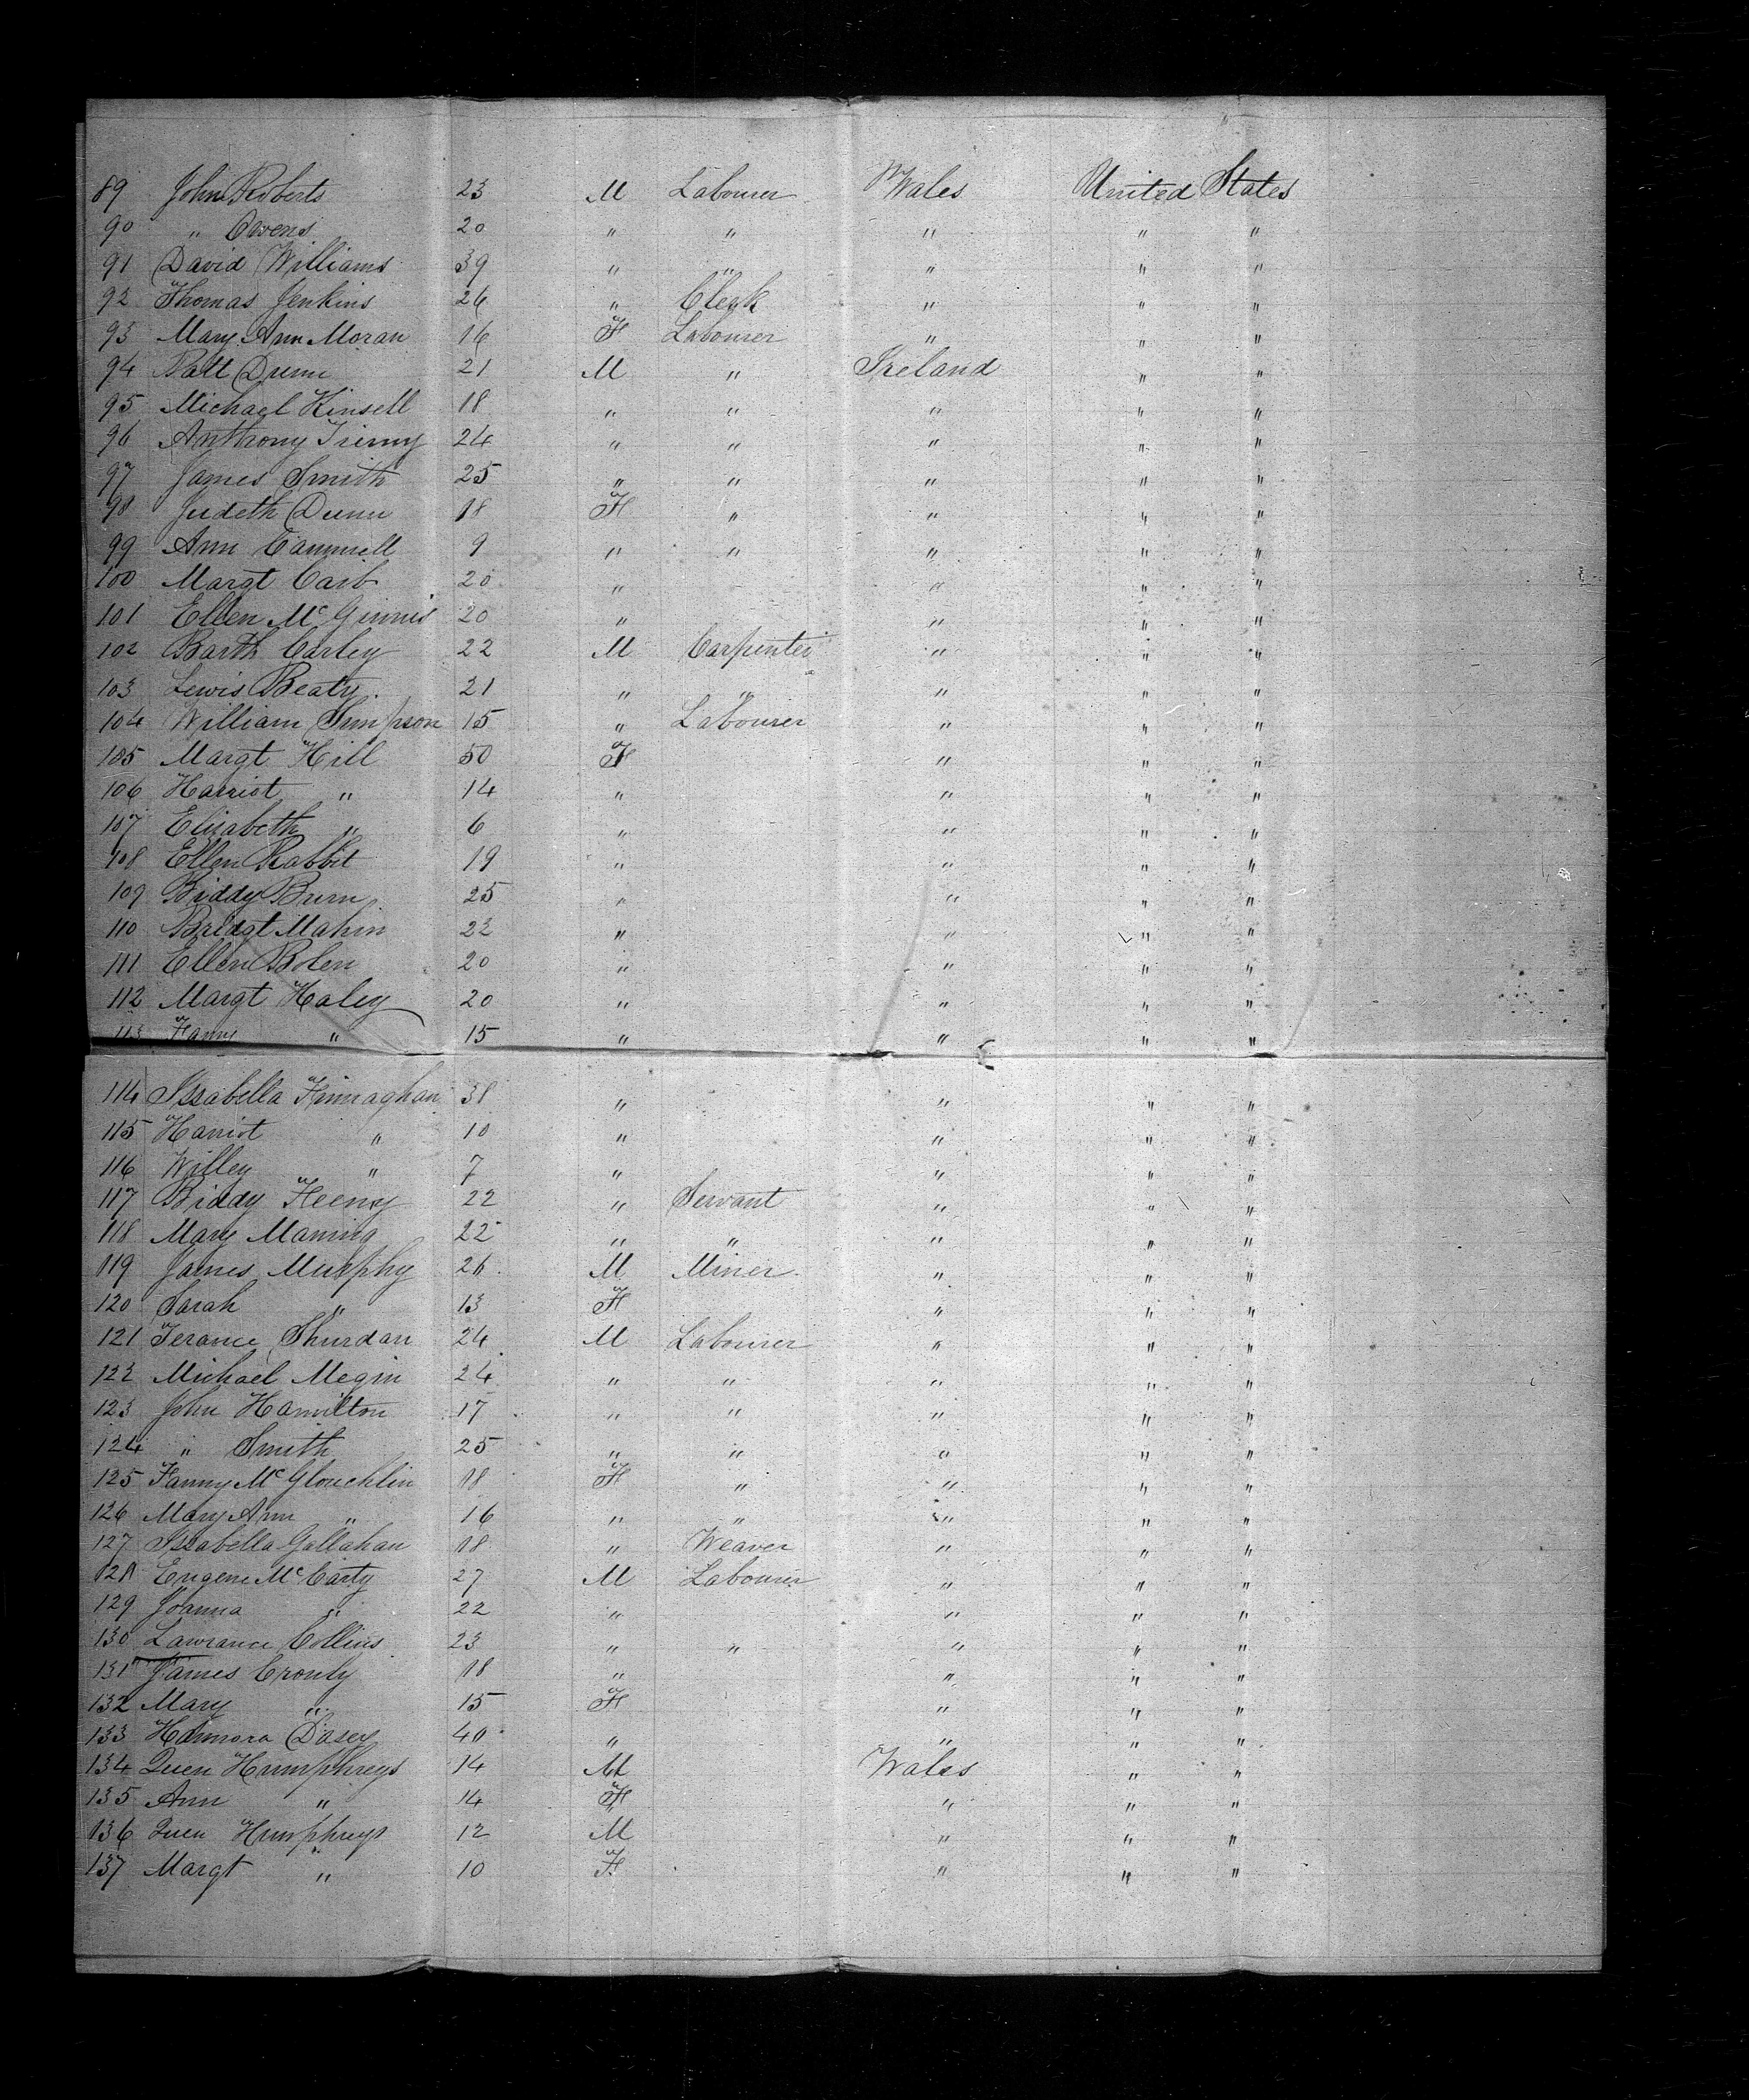 89 John Roberts 23 M Labourer Wales United States
90 " Owens 20 " " " " "
91 David Williams 39 " " " " "
92 Thomas Jenkins 26 " Clerk " " "
93 Mary Ann Moran 16 F Labourer " " "
94 Patt Dunn 21 M " Ireland " "
95 Michael Kinsell 18 " " " " "
96 Anthony Tierny 24 " " " " "
97 James Smith 25 " " " " "
98 Judeth Dunn 18 F " " " "
99 Ann Cammell 9 " " " " "
100 Margt 20 " " " "
101 Ellen McGinnis 20 " " " "
102 Barth Carley 22 M Carpenter " " "
103 Lewis Beaty. 21 " " " " "
104 William Simpson 15 " Labourer " " "
105 Margt Hill 50 F " " "
106 Harriot " 14 " " " "
107 Elizabeth " 6 " " " "
108 Ellen Rabbit 19 " " " "
109 Biddy Burn 25 " " " "
110 Bridgt Mahin 22 " " " "
111 Ellen Bolen 20 " " " "
112 Margt Haley 20 " " " "
113 Fanny " 15 " " " "
114 Issabella Finnaghan 38 " " " "
115 Harriot " 10 " " " "
116 Willey " 7 " " " "
117 Biddy Feeny 22 " Servant " " "
118 Mary Maning 22 " " " " "
119 James Murphy 26 M Miner " " "
120 Sarah " 13 F " " "
121 Terance Shurdan 24 M Labourer " " "
122 Michael Megin 24 " " " " "
123 John Hamilton 17 " " " " "
124 " Smith 25 " " " " "
125 Fanny McGlouchlin 18 F " " " "
126 Mary Ann " 16 " " " " "
127 Issabella Gallahan 18 " Weaver " " "
128 Eugene McCarty 27 M Labourer " " "
129 Joanna " 22 " " " "
130 Lawrance Collins 23 " " " " "
131 James Cronly 18 " " " "
132 Mary " 15 F " " "
133 Hannora Dasey 40 " " " "
134 Humphreys 14 M Wales " "
135 Ann " 14 F " " "
136 Humphreys 12 M " " "
137 Margt " 10 F " " "